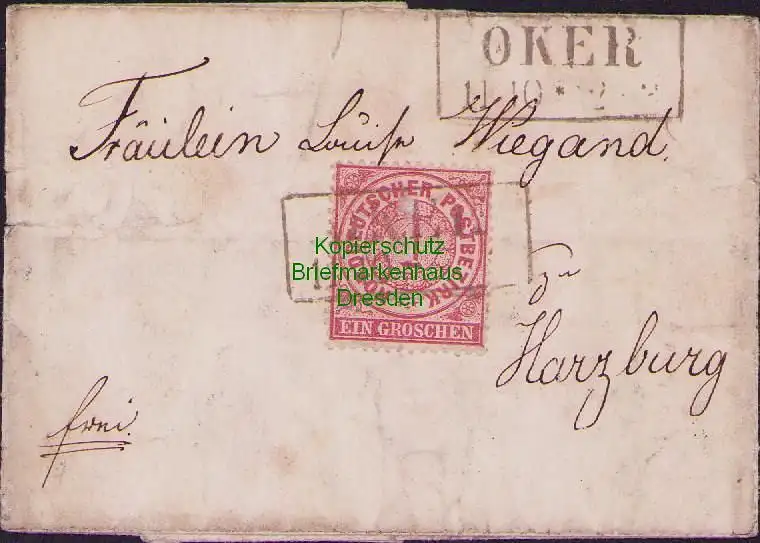 OKER
11 10 *
Fräulein Louise Wiegand.
NORDDEUTSCHER POSTBEZIRK
EIN GROSCHEN
Kopierschutz
Briefmarkenhaus
Dresden
zu
Harzburg
frei.